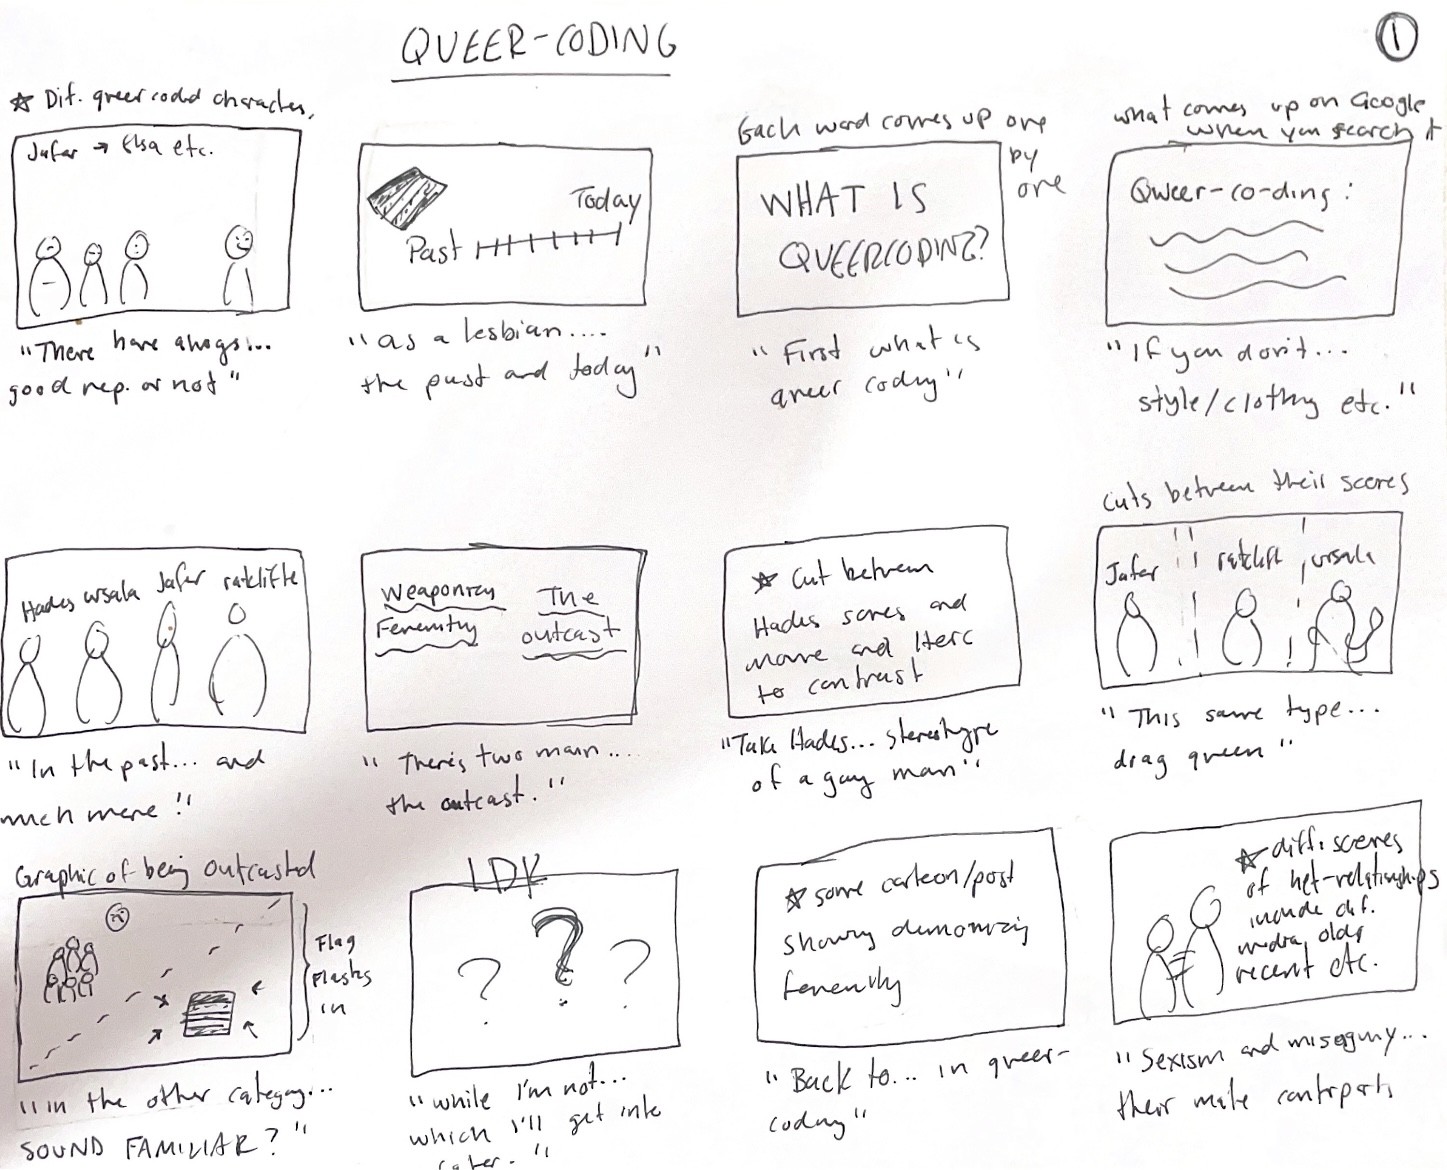 QUEER-CODING
1
☆ Dif. queer coded characters,
Jafar → Elsa etc.
"There have always...
good rep. or not"
Past
Today
"as a lesbian....
the past and today"
Each word comes up one
by
one
WHAT IS
QUEERCODING?
"First what is
queer coding"
what comes up on Google
when you search it
Qweer-co-ding:
"If you don't...
style/clothing etc."
Hades ursala Jafar ratcliffe
"In the past... and
much more!"
Weaponizing
Femininity
The
outcast
"There's two main....
the outcast."
☆ Cut between
Hades scenes and
movie and Herc
to contrast
"Take Hades... stereotype
of a gay man"
Cuts between their scenes
Jafar ratcliff ursala
"This same type...
drag queen"
Graphic of being outcasted
Flag
flashes
in
"in the other category...
SOUND FAMILIAR?"
IDK
? ? ?
"while I'm not...
which I'll get into
later."
☆ some cartoon/post
showing demonizing
femininity
"Back to... in queer-
coding"
☆ diff. scenes
of het-relationships
include dif.
media, older
recent etc.
"Sexism and misogyny...
their male contrparts